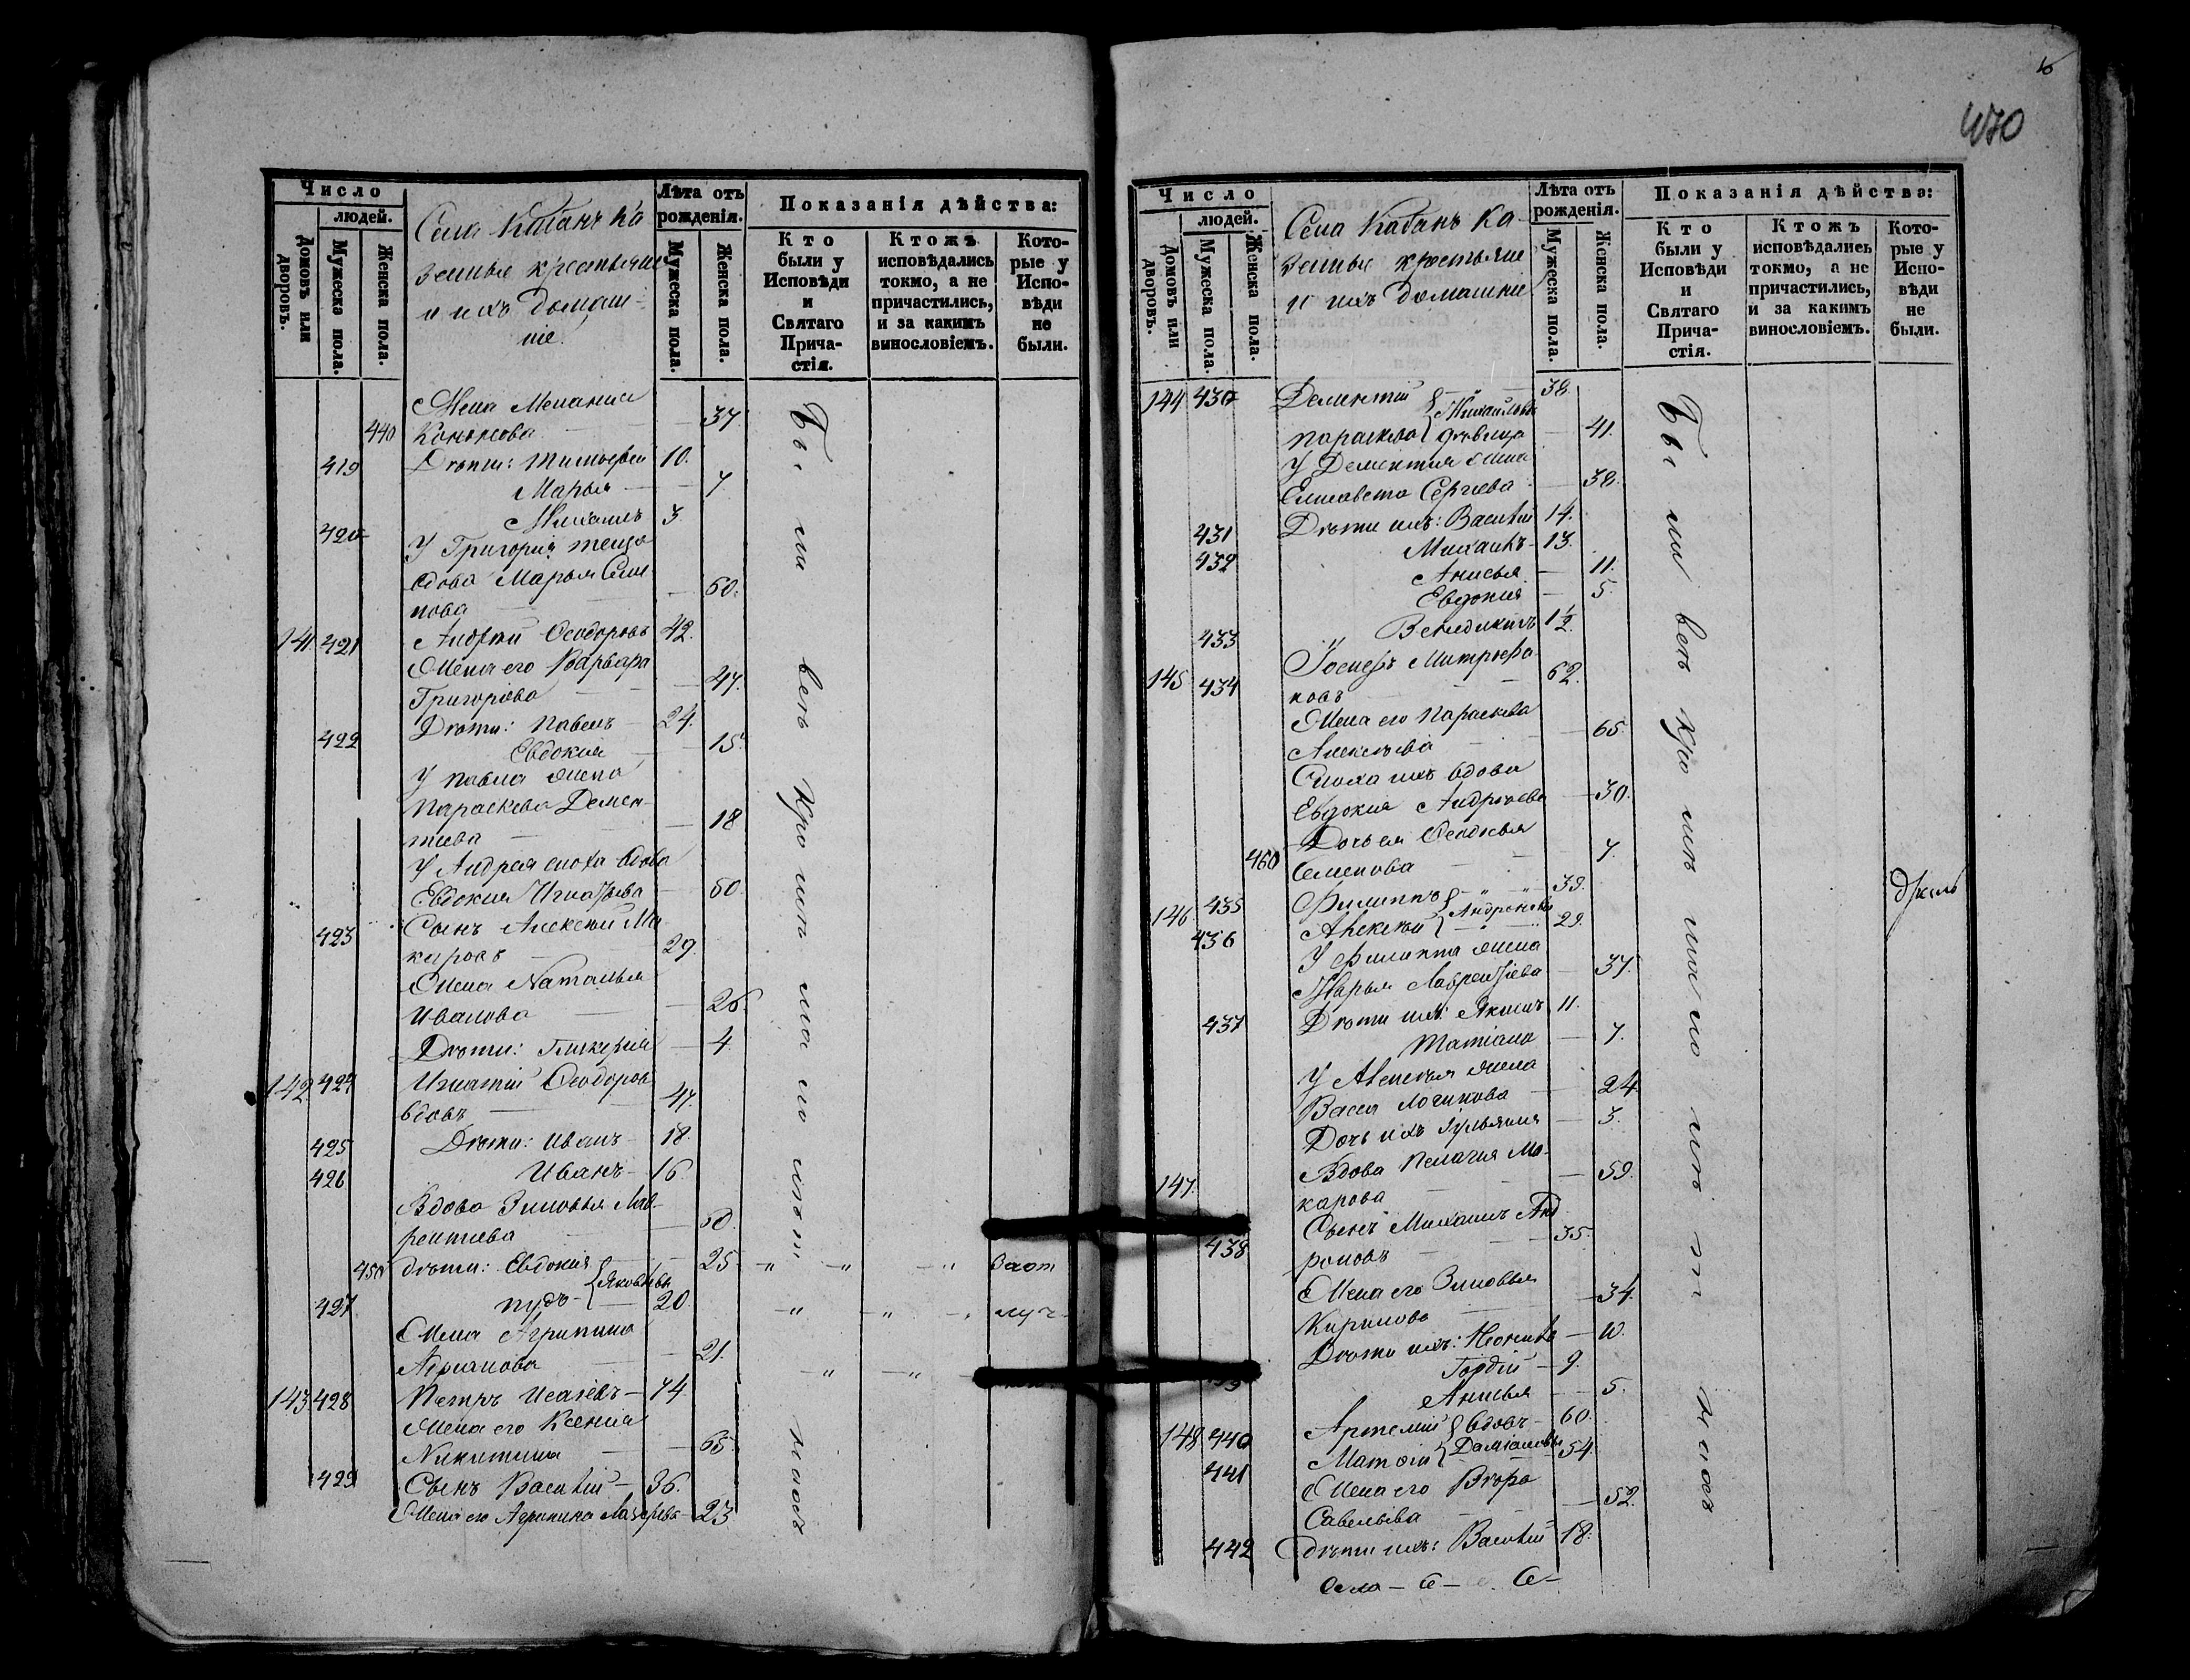 Число
людей.
Домовъ или дворовъ.
Мужеска пола.
Женска пола.
Села Кабанъ Ка
зенные крестьяне
и ихъ домаш-
ніе.
Лѣта отъ
рожденія.
Мужеска пола.
Женска пола.
Показанія дѣйства:
Кто
были у
Исповѣди
и
Святаго
Прича-
стія.
Ктожъ
исповѣдались
токмо, а не
причастились,
и за какимъ
винословіемъ.
Кото-
рые у
Испо-
вѣди
не
были.
Жена Меланія
440 Кононова — 37
419 Дѣти: Тимофей 10.
Марья — 7
420 Михаилъ 3
У Григорія теща
вдова Марья Семе
нова — 60.
141 421 Андрей Ѳеодоровъ 42.
Жена его Варвара
Григорьева — 47.
422 Дѣти: Павелъ — 24.
Евдокия — 15.
У Павла жена
Параскева Демен-
тиева — 18
У Андрея сноха вдова
Евдокия Игнатьева — 50.
423 Сынъ Алексѣй Ма
каровъ — 29.
Жена Наталья
Иванова — 26.
Дѣти: Гликерия — 4.
142 424 Игнатій Ѳеодоровъ
вдовъ — 47.
425 Дѣти: Иванъ — 18.
426 Иванъ — 16
Вдова Зиновья Лав-
рентиева — 50.
450 дѣти: Евдокия — 25 " " "
427 Яковлевы 20. " " "
Жена Агрипина
— 21. " "
143 428 Петръ Исаіевъ — 74
Жена его Ксенія
Никитина — 65
429 Сынъ Василій — 36.
Жена его Агрипина — 23
470
Число
людей.
Домовъ или дворовъ.
Мужеска пола.
Женска пола.
Села Кабанъ Ка-
зенные крестьяне
и ихъ домашніе
Лѣта отъ
рожденія.
Мужеска пола.
Женска пола.
Показанія дѣйства:
Кто
были у
Исповѣди
и
Святаго
Прича-
стія.
Ктожъ
исповѣдались
токмо, а не
причастились,
и за какимъ
винословіемъ.
Кото-
рые у
Испо-
вѣди
не
были.
144 430 Дементій — 38.
Михайловы
Параскева дѣвица — 41.
У Дементия жена
Елисавета Сергѣева — 38.
431 Дѣти ихъ: Василій 14.
432 Михаилъ — 13.
Анисья — 11.
Евдокия — 5.
433 Венедиктъ 1½.
145 434 Іосифъ Митрофа
новъ — 62.
Жена его Параскева
Алексѣева — 65.
Сноха ихъ вдова
Евдокия Андреева — 30.
Дочь ея Ѳеодосья
460 Семенова — 7.
146 435 Филиппъ — " — " — 39.
436 Алексѣй Андроновы 29.
У Филиппа жена
Марья Лаврентьева — 37.
437 Дѣти ихъ: Якимъ 11.
Татіана — 7.
У Алексѣя жена
Васса Логинова — 24
Дочь ихъ Іульянія — 3.
147. Вдова Пелагия Ма-
карова — 59.
438 Сынъ Михаилъ Анд
роновъ — 35.
Жена его Зиновья
Кирилова — 34.
Дѣти ихъ: — 10.
Гордій — 9.
Анисья — 5.
148 440 Артемій вдовъ — 60.
441 Матѳій Даміановы 54.
Жена его Вѣра
Савельева — 52.
442 дѣти ихъ: Василій 18.